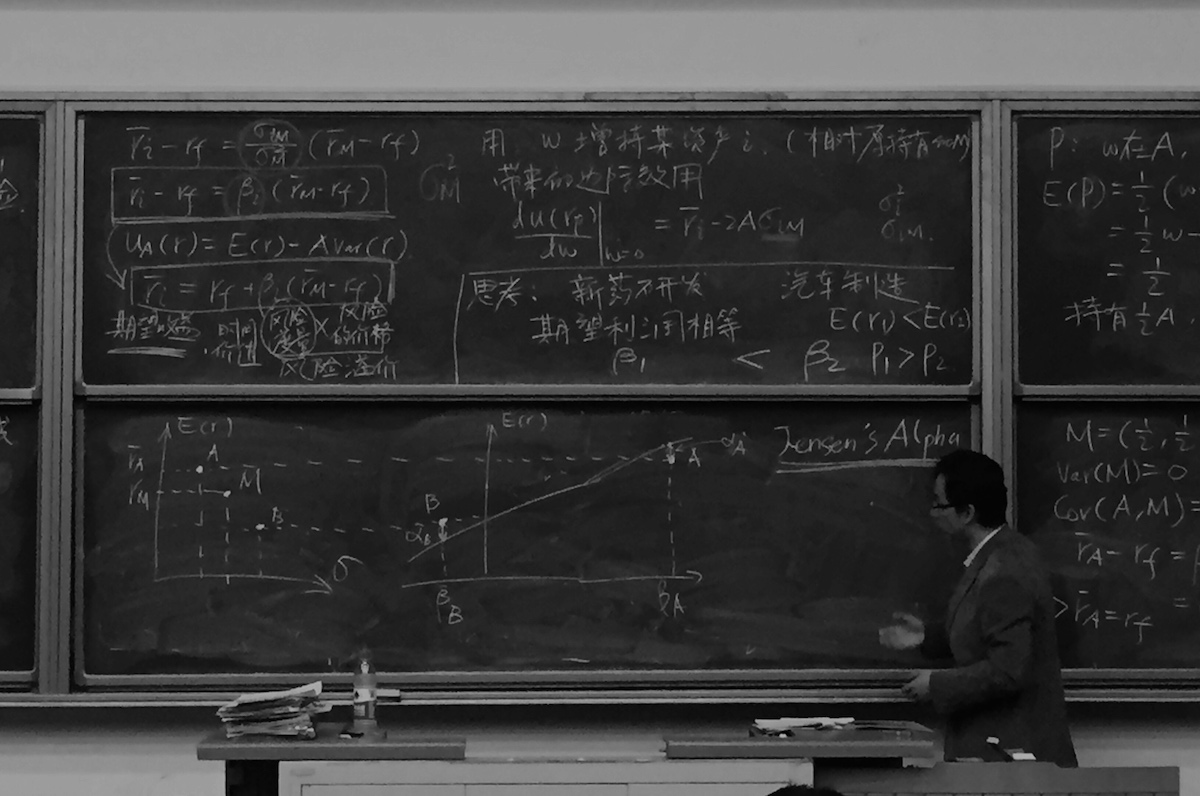 r̄ᵢ - r_f = σ_iM/σ²_M (r̄_M - r_f)
r̄ᵢ - r_f = βᵢ (r̄_M - r_f)
σ²_M
U_A(r) = E(r) - A Var(r)
r̄ᵢ = r_f + βᵢ(r̄_M - r_f)
期望收益 时间价值 风险 × 风险的价格
风险溢价
用: w 增持某资产 i. (相对原持有
带来的边际效用
du(r_p)/dw |_{w=0} = r̄ᵢ - 2Aσ_iM
σ²ᵢ
σ_iM
思考: 新药开发 汽车制造
期望利润相等 E(r₁) < E(r₂)
β₁ < β₂ P₁ > P₂
P: w在A,
E(P) = ½ (w
= ½ w -
= ½
持有½A,
E(r)
r̄_A A
r̄_M M
B
σ
E(r)
A α_A
B
α_B
β_B β_A
Jensen's Alpha
M = (½, ½
Var(M) = 0
Cov(A, M) =
r̄_A - r_f =
> r̄_A = r_f =